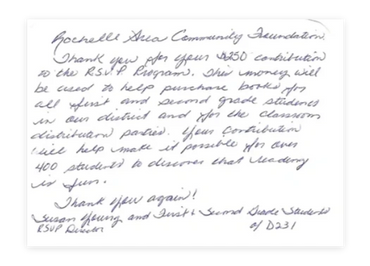 Rochelle Area Community Foundation
Thank you for your $250 contribution
to the RSVP Program. This money will
be used to help purchase books for
all first and second grade students
in our district and for the classroom
distribution parties. Your contribution
will help make it possible for over
400 students to discover that reading
is fun.
Thank you again!
Susan Young and First & Second Grade Students
RSVP of D231